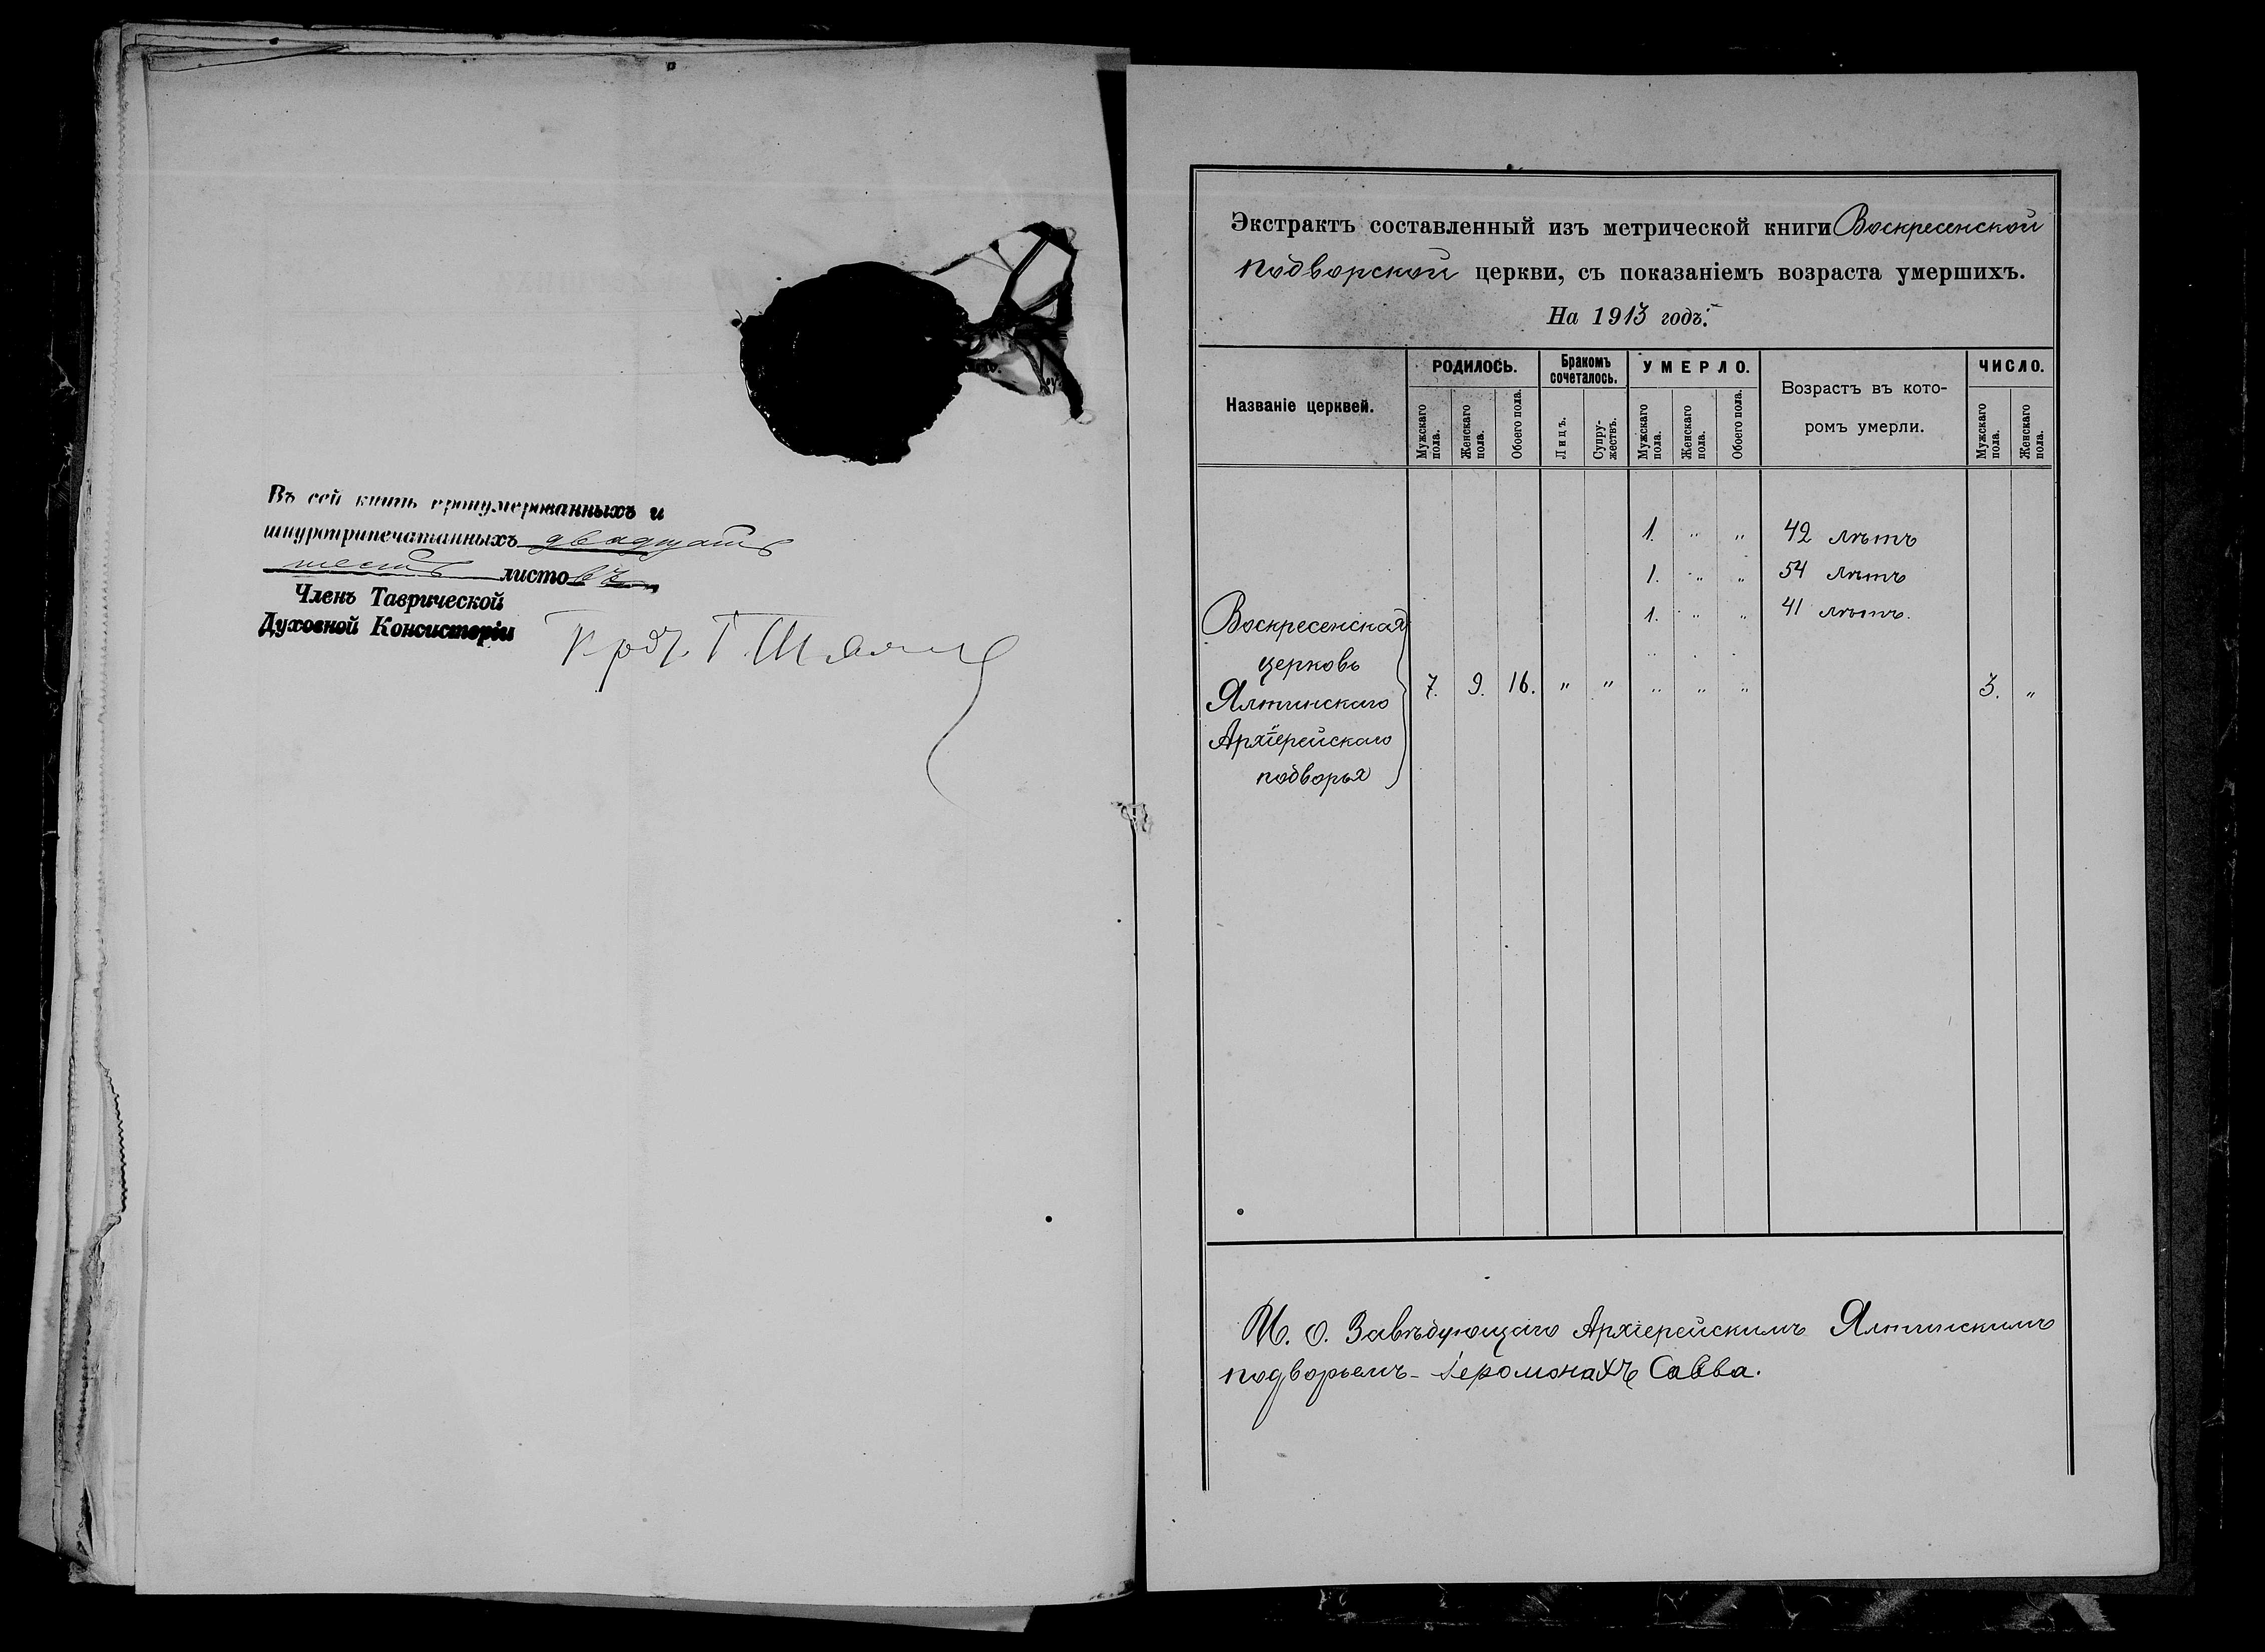 Въ сей книгѣ пронумерованныхъ и
шнуроприпечатанныхъ двадцать
шесть листовъ
Членъ Таврической
Духовной Консисторіи
Экстрактъ составленный изъ метрической книги Воскресенской
подворской церкви, съ показаніемъ возраста умершихъ.
На 1913 годъ.
Названіе церквей.
РОДИЛОСЬ.
Мужскаго пола.
Женскаго пола.
Обоего пола.
Бракомъ сочеталось.
Лицъ.
Супружествъ.
УМЕРЛО.
Мужскаго пола.
Женскаго пола.
Обоего пола.
Возрастъ въ кото-
ромъ умерли.
ЧИСЛО.
Мужскаго пола.
Женскаго пола.
1. " " 42 лѣтъ
1. " " 54 лѣтъ
1. " " 41 лѣтъ.
Воскресенская
церковь
Ялтинскаго 7. 9. 16. " " " " " 3. "
Архіерейскаго
подворья
И. О. Завѣдующаго Архіерейскимъ Ялтинскимъ
подворьемъ - Іеромонахъ Савва.